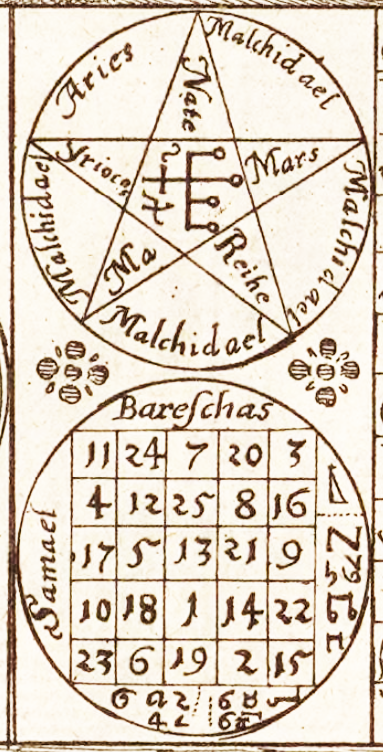 Aries
Malchidael
Nate
Mars
Malchidael
Malchidael
Ma
Reihe
Malchidael
Bareschas
Samael
11 24 7 20 3
4 12 25 8 16
17 5 13 21 9
10 18 1 14 22
23 6 19 2 15